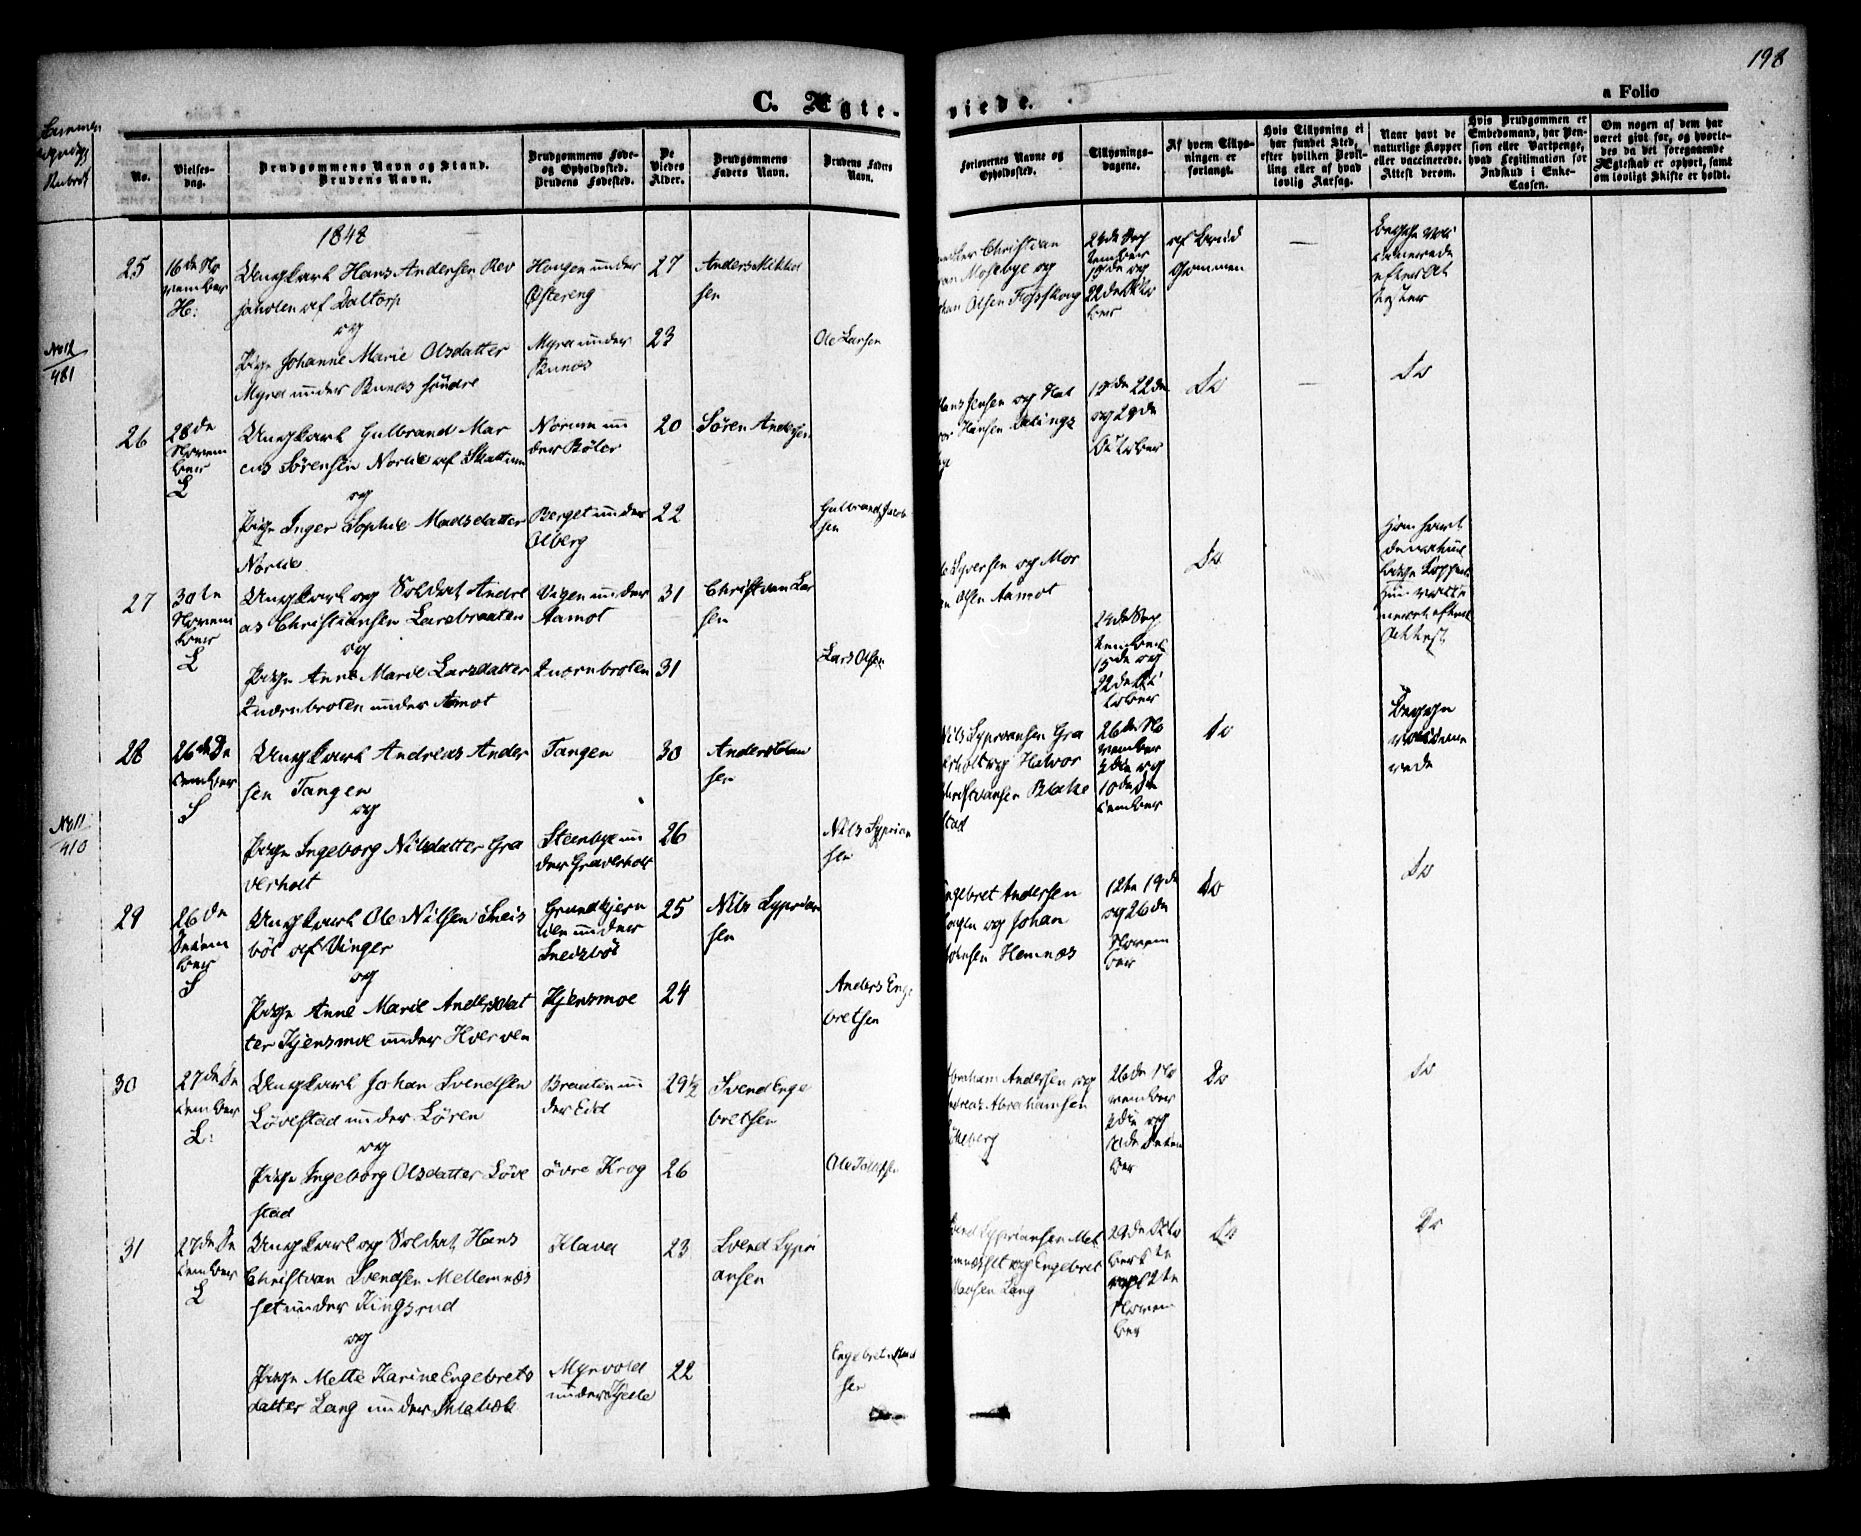 198
C. Ægte-
viede.
a Folio
No.
Vielses-
dag.
Brudgommens Navn og Stand.
Brudens Navn.
Brudgommens Føde-
og Opholdssted.
Brudens Fødested.
De
Viedes
Alder.
Brudgommens
Faders Navn.
Brudens Faders
Navn.
Forlovernes Navne og
Opholdssted.
Tillysnings-
dagene.
Af hvem Tillys-
ningen er
forlangt.
Hvis Tillysning ei
har fundet Sted,
efter hvilken Bevil-
ling eller af hvad
lovlig Aarsag.
Naar havt de
naturlige Kopper
eller vaccinerede.
Attest derom.
Hvis Brudgommen er
Embedsmand, har Pen-
sion eller Vartpenge,
hvad Legitimation for
Indskud i Enke-
Cassen.
Om nogen af dem har
været givt før, og hvorle-
des da det foregaaende
Ægteskab er ophørt, samt
om lovligt Skifte er holdt.
1848
25
16de No
vember
H:
Ungkarl Hans Andersen Rev
af Daltorp
og
Pige Johanne Marie Olsdatter
Myra under Bunæs søndre
Haugen under
Østereng
Myra under
Bunæs
27
23
Anders Mikkel
sen
Ole Larsen
Christian
Mosebye og
Olsen Fossskoug
24de Sep
tember
22de Okto
ber
af Brud
Gommen
Begge vac
cinerede
efter At
tester
No 12
481
26
28de
Novem
ber
L
Ungkarl Gulbrand Mar
cus Sørensen Norlie af Skattum
og
Pige Inger Sophie Madsdatter
Norlie
Norum un
der Bøler
Berget under
Olberg
20
22
Søren Andersen
Gulbrand Jacob
sen
Hans Jensen og Hal
vor Hansen
22de
og 29de
October
Do
Do
27
30te
Novem
ber
L
Ungkarl og Soldat Andre
as Christiansen Larebraaten
og
Pige Anne Marie Larsdatter
Kværnbroten under Aamot
Vigen under
Aamot
Kværnbroten
31
31
Christian Lar
sen
Lars Olsen
Syversen og Mor
ten Olsen Aamot
24de Sep
tember
15de og
22de Oc
tober
Do
Attest
28
26de De
cember
S
Ungkarl Andreas Ander
sen Tangen
og
Pige Ingeborg Nilsdatter Gra
verholt
Tangen
Steenbye un
der Graverholt
30
26
Anders
sen
Nils Syprian
sen
Nils Sypransen Gra
verholt og Halvor
Christiansen Blake
stad
26de No
vember
3die og
10de De
cember
Do
Begge
vaccine
rede
No 11
410
29
26de
Decem
ber
S
Ungkarl Ole Nilsen Sneis
böl af Vinger
og
Pige Anne Marie Andersdat
ter Kjensmoe under Hverven
Grundtjern
lien under
Sneisböl
Kjensmoe
25
24
Nils Syprian
sen
Anders Enge
bretsen
Engebret Andersen
og Johan
Hemnæs
12te 19de
og 26de
Novem
ber
Do
Do
30
27de De
cember
L:
Ungkarl Johan Svendsen
Lövestad under Lören
og
Pige Ingeborg Olsdatter Löve
stad
Braaten un
der Eid
övre Krog
29½
26
Svend Enge
bretsen
Ole Tollefsen
Abraham Andersen og
Andreas Abrahamsen
26de No
vember
3die og
10de Decem
ber
Do
Do
31
27de De
cember
L
Ungkarl og Soldat Hans
Christian Svendsen Mellemnæs
set under Kingsrud
og
Pige Mette Karine Engebrets
datter Lang under
Klava
Myrvold
under Kjelle
23
22
Svend Sypri
ansen
Engebret Mad
sen
Svend Sypriansen Mel
lemnæsset og Engebret
Madsen Lang
29de Octo
ber 5te
og 12te
Novem
ber
Do
Do